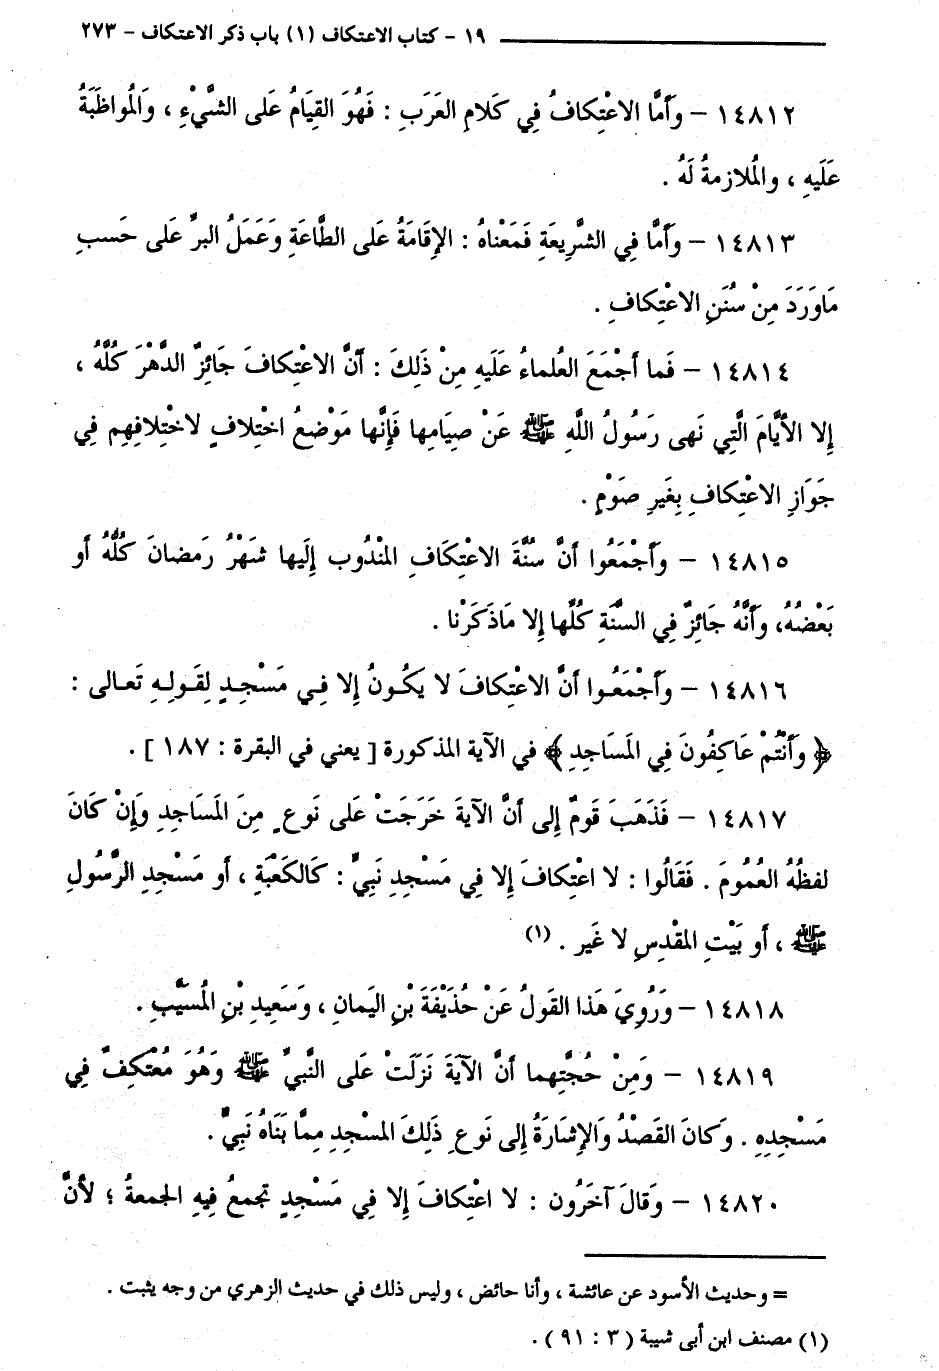 ١٩ - كتاب الاعتكاف (١) باب ذكر الاعتكاف - ٢٧٣
١٤٨١٢ - وَأَمَّا الاعْتِكافُ فِي كَلامِ العَرَبِ : فَهُوَ القِيَامُ عَلى الشَّيْءِ ، وَالْمُواظَبَةُ
عَلَيهِ ، والْمُلازمةُ لَهُ .
١٤٨١٣ - وَأَمَّا فِي الشَّرِيعَةِ فَمَعْناهُ : الإِقَامَةُ عَلى الطَّاعَةِ وَعَمَلُ البرِّ عَلى حَسبِ
مَاوَرَدَ مِنْ سُنَنِ الاعْتِكافِ .
١٤٨١٤ - فَما أجْمَعَ العُلماءُ عَلَيهِ مِنْ ذَلِكَ : أنَّ الاعْتِكافَ جَائِزٌ الدَّهْرَ كُلَّهُ ،
إِلا الأيَّامَ الَّتِي نَهى رَسُولُ اللَّهِ ﷺ عَنْ صِيَامِها فَإِنَّها مَوْضعُ اخْتِلافٍ لاخْتِلافِهِم فِي
جَوَازِ الاعْتِكافِ بِغَيرِ صَوْمٍ .
١٤٨١٥ - وَأجْمَعُوا أنَّ سُنَّةَ الاعْتِكَافِ المنْدُوب إِلَيها شَهْرُ رَمضانَ كُلُّهُ أو
بَعْضُهُ، وَأنَّهُ جَائِزٌ فِي السَّنَةِ كُلِّها إِلا مَاذَكَرْنا .
١٤٨١٦ - وَأجْمَعُوا أنَّ الاعْتِكافَ لا يَكُونُ إِلا فِي مَسْجِدٍ لِقَولِهِ تَعالى :
﴿ وَأَنْتُمْ عَاكِفُونَ فِي المَسَاجِدِ ﴾ في الآية المذكورة [ يعني في البقرة : ١٨٧ ] .
١٤٨١٧ - فَذَهَبَ قَومٌ إِلى أنَّ الآيةَ خَرَجَتْ عَلى نَوعٍ مِنَ المَساجِدِ وَإِنْ كَانَ
لفظُهُ العُمُومَ . فَقَالُوا : لا اعْتِكافَ إِلا فِي مَسْجِدِ نَبِيٍّ : كَالكَعْبَةِ ، أو مَسْجِدِ الرَّسُولِ
ﷺ ، أو بَيْتِ المقْدِسِ لا غَير . (١)
١٤٨١٨ - وَرُوِيَ هَذا القَولُ عَنْ حُذَيْفَةَ بْنِ اليَمانِ ، وَسَعِيدِ بْنِ الْمُسَيَّبِ .
١٤٨١٩ - وَمِنْ حُجَّتِهِما أنَّ الآيَةَ نَزَلَتْ عَلى النَّبيِّ ﷺ وَهُوَ مُعْتَكِفٌ فِي
مَسْجِدِهِ . وَكانَ القَصْدُ وَالإِشارَةُ إِلى نَوعِ ذَلِكَ المسْجِدِ مِمَّا بَنَاهُ نَبِيٌّ .
١٤٨٢٠ - وَقالَ آخَرُون : لا اعْتِكافَ إِلا فِي مَسْجِدٍ تجمعُ فِيهِ الجمعةُ ؛ لأنَّ
= وحديث الأسود عن عائشة ، وأنا حائض ، وليس ذلك في حديث الزهري من وجه يثبت .
(١) مصنف ابن أبى شيبة ( ٣ : ٩١ ) .